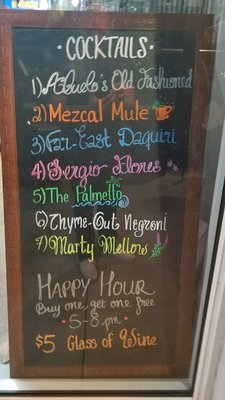 · COCKTAILS ·
1) Abuelo's Old Fashioned
2) Mezcal Mule
3) Far-East Daquiri
4) Sergio Flores
5) The Palmetto
6) Thyme-Out Negroni
7) Marty Mellows
HAPPY HOUR
Buy one, get one free
· 5-8 pm ·
$5 Glass of Wine